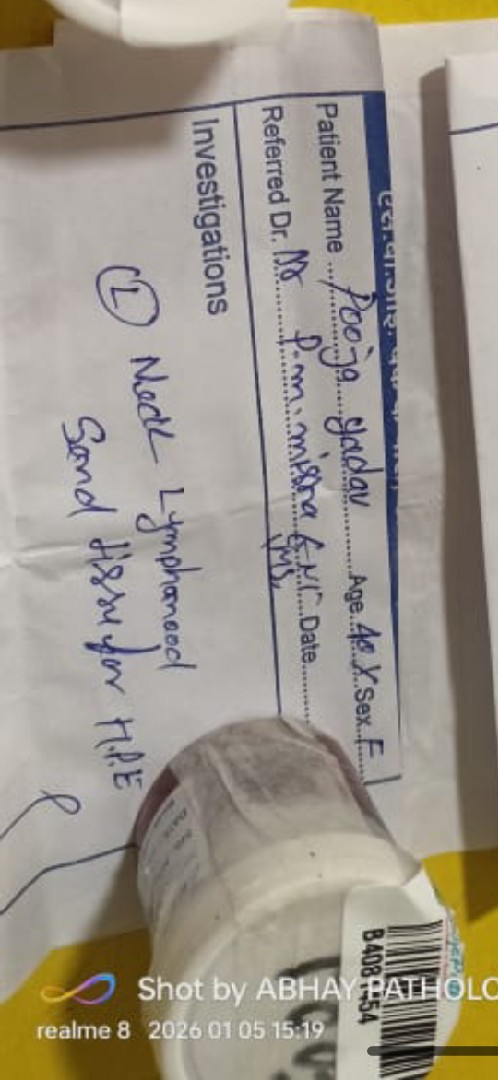 Patient Name Pooja yadav Age 40 Y Sex F
Referred Dr. P.m. mishra ENT Date
MS
Investigations
(L) Neck Lymphonood
Send tissu for H.P.E
B408
54
Shot by ABHAY PATHOLO
realme 8 2026 01 05 15:19